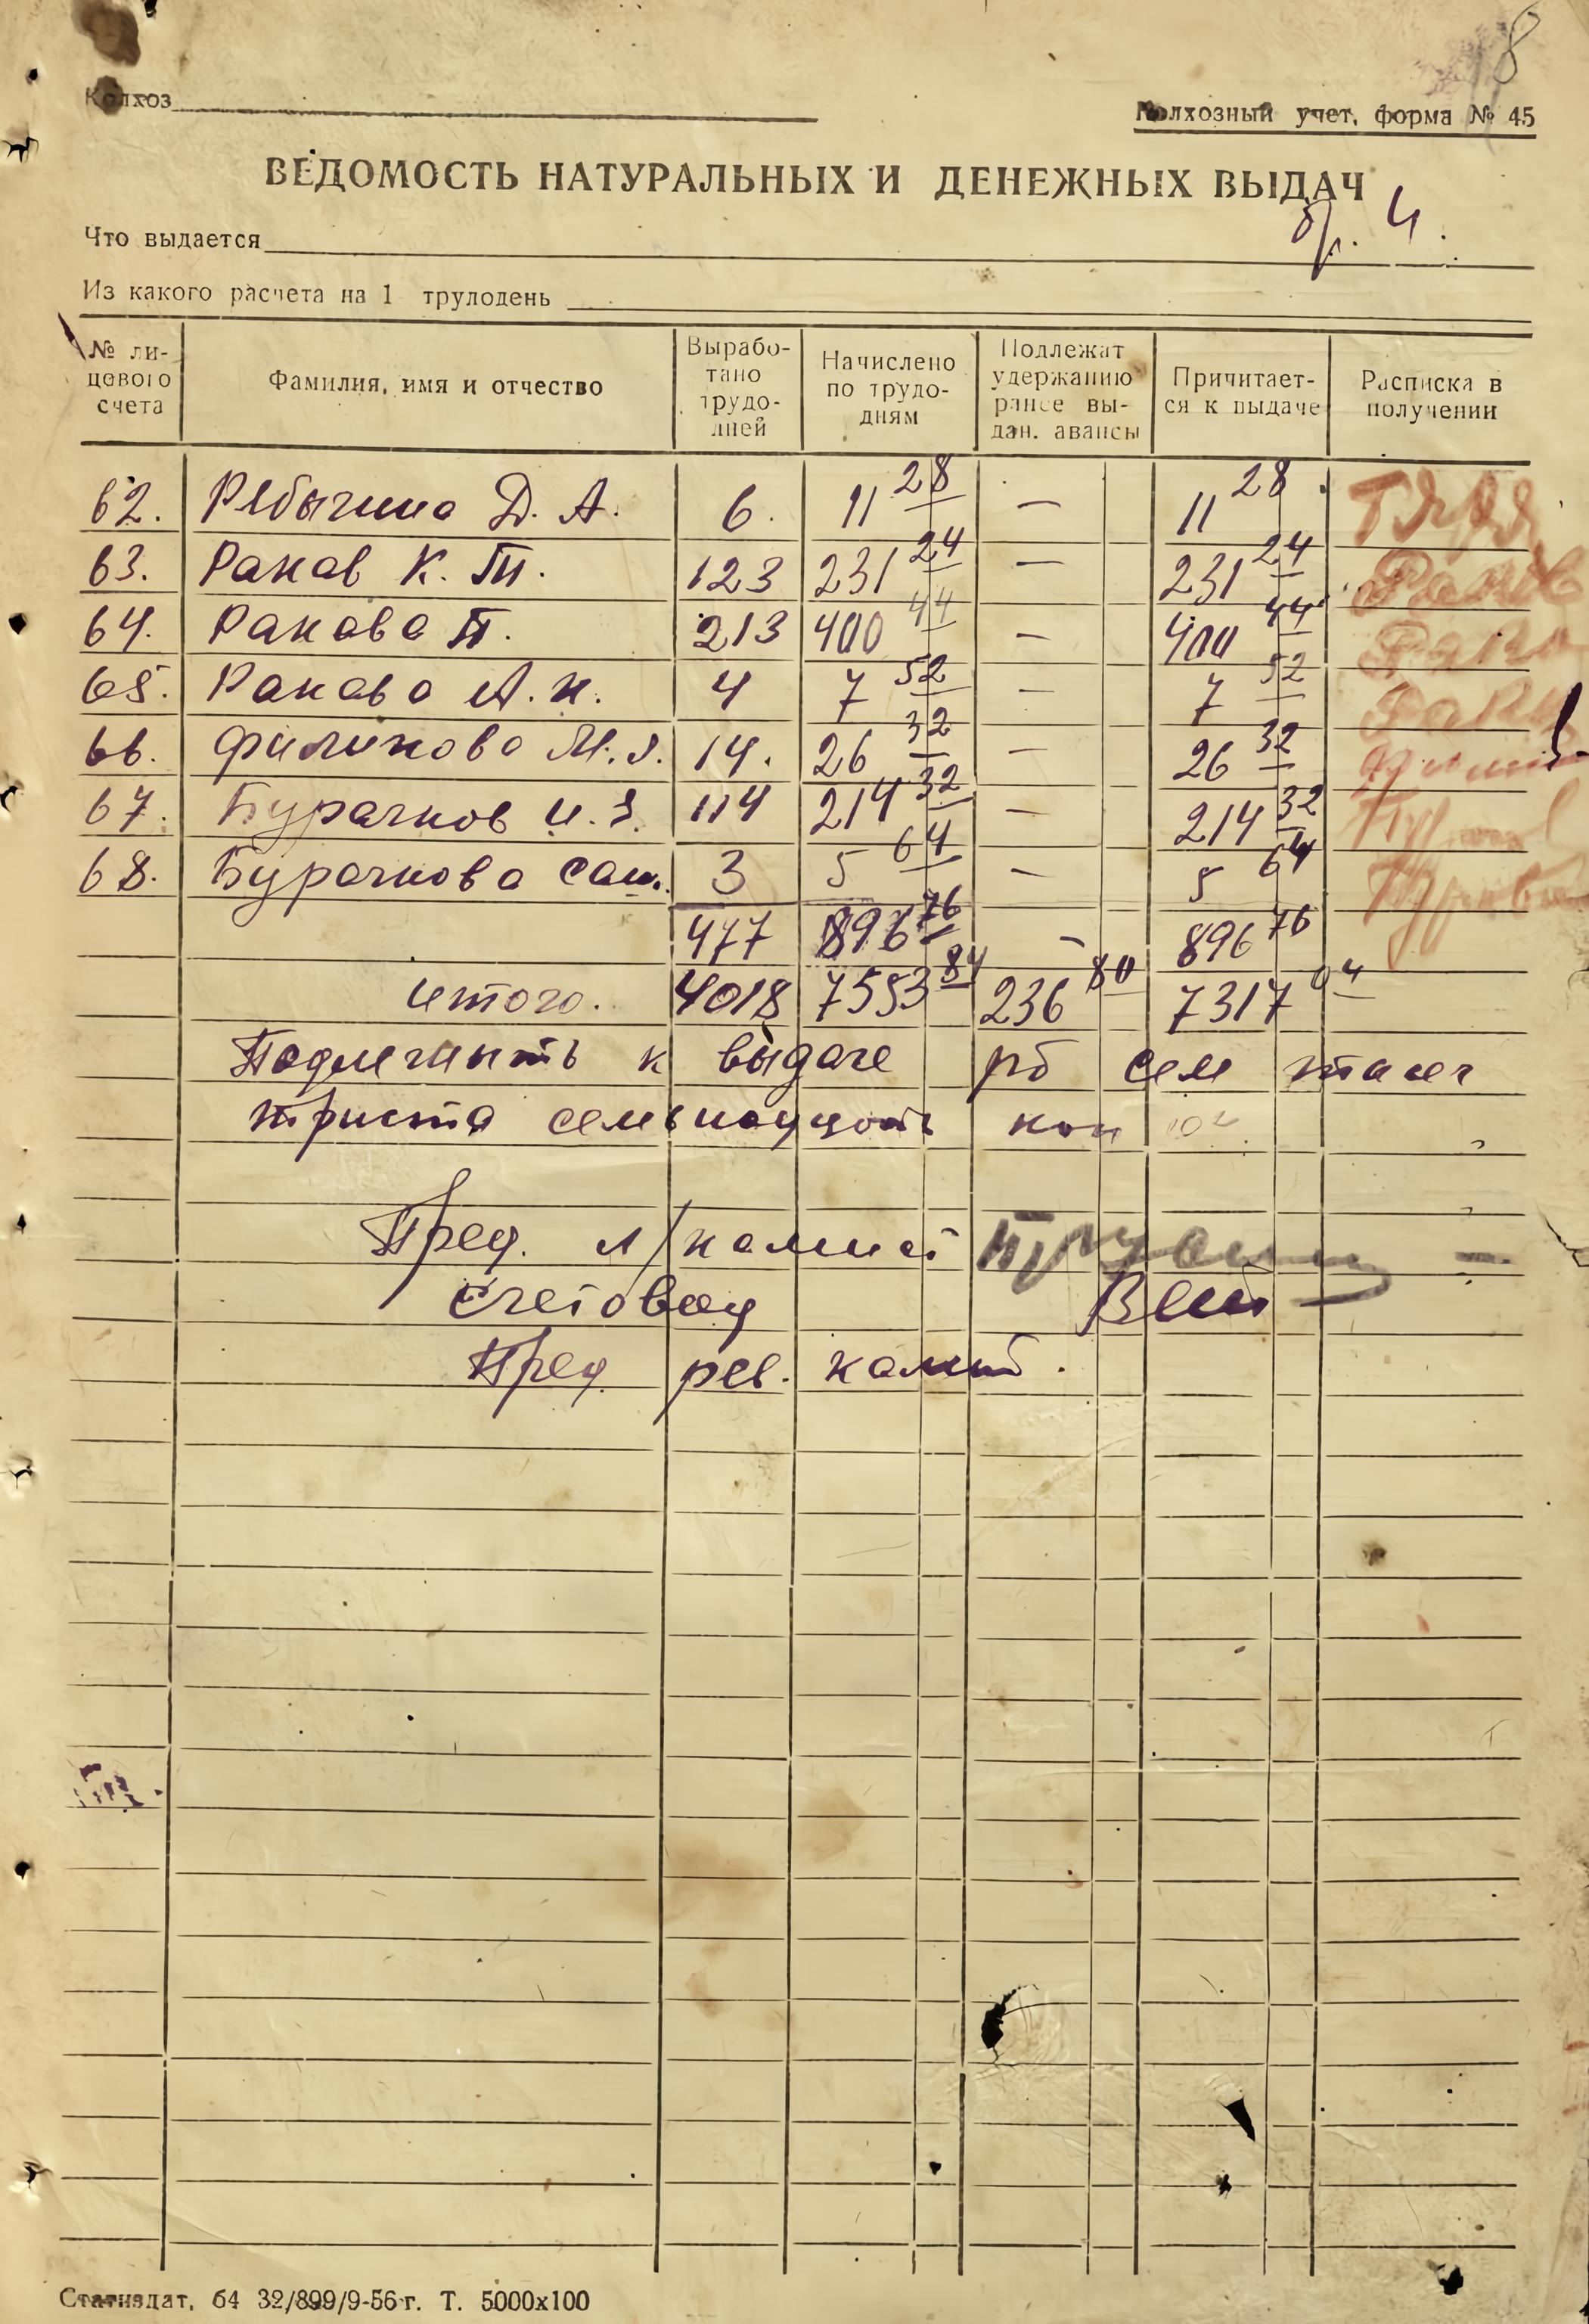 8
Колхоз
Колхозный учет, форма № 45
ВЕДОМОСТЬ НАТУРАЛЬНЫХ И ДЕНЕЖНЫХ ВЫДАЧ
бр. 4.
Что выдается
Из какого расчета на 1 трудодень
№ ли-
цового
счета
Фамилия, имя и отчество
Вырабо-
тано
трудо-
дней
Начислено
по трудо-
дням
Подлежат
удержанию
ранее вы-
дан. авансы
Причитает-
ся к выдаче
Расписка в
получении
62. Рябычина Д. А. 6. 11 28 — 11 28
63. Раков К. Т. 123 231 24 — 231 24
64. Ракова П. 213 400 44 — 400 44
65. Ракова А. К. 4 7 52 — 7 52
66. Филикова М. Я. 14. 26 32 — 26 32
67. Бурачков И. Я. 114 214 32 — 214 32
68. Бурачкова Саш. 3 5 64 — 5 64
477 896 76 — 896 76
итого. 4018 7553 84 236 80 7317 04
Подлежить к выдаче рб сем тысеч
триста семьнацать коп 04
Пред. л/комисі
счетовод
Пред рев. комис.
Статиздат, 64 32/899/9-56 г. Т. 5000х100